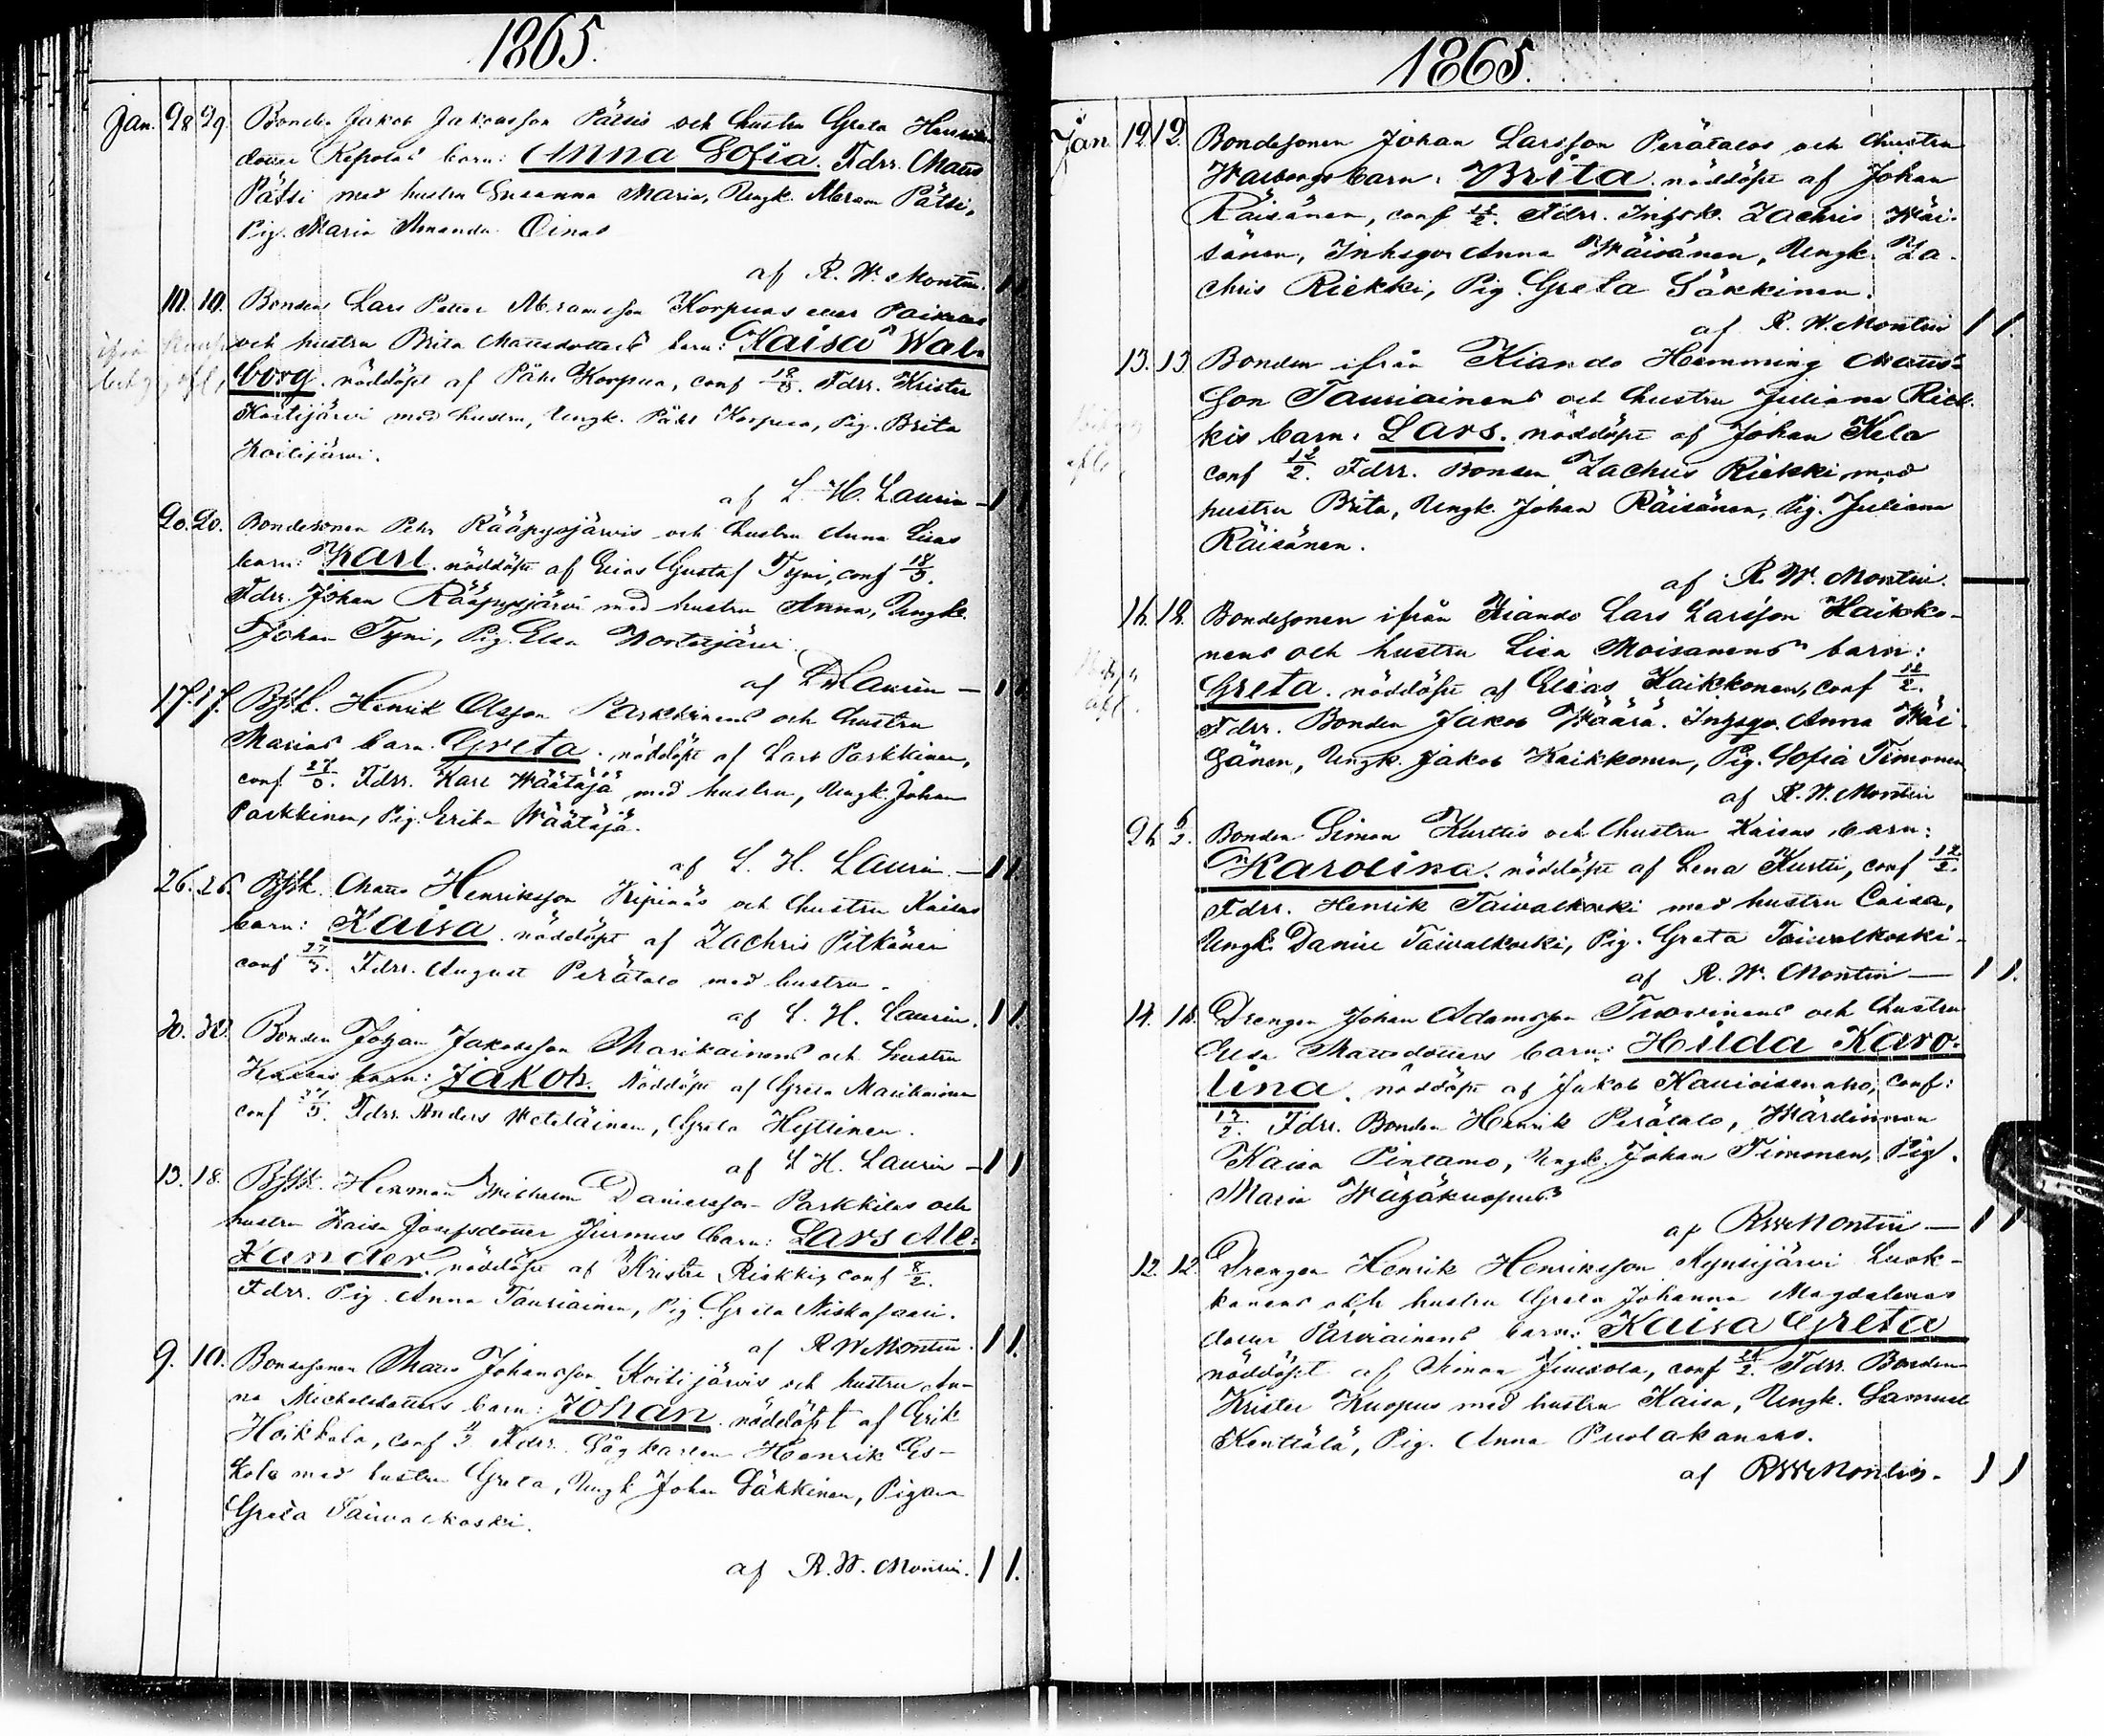 1865.
Jan. 28 29. Bonden Jakob Jakobsson Pätsis och hustru Greta Henriks
dotter Repolas barn: Anna Sofia. Fdrr. Matts
Pätsi med hustru Susanna Maria, Ungk. Abram Pätsi,
Pig. Maria Amanda Oinas
af R. W. Montin.
10. 10. Bonden Lars Petter Abramsson Korpuas eller
och hustru Brita Mattsdotters barn: Kaisa Wal-
borg. nöddöpt af Pähr Korpua, conf Fdrr. Krister
Koitijärvi med hustru, Ungk. Pähr Korpua, Pig. Brita
Koitijärvi.
af L. H. Laurin
20. 20. Bondesonen Pehr Rääpysjärvis och hustru Anna Lisas
barn: Karl. nöddöpt af Elias Gustaf Tyni, conf
Fdrr. Johan Rääpysjärvi med hustru Anna, Ungk.
Johan Tyni, Pig. Elsa
af L H Laurin
17. 17. Henrik Olsson Parkkinens och hustru
Marias barn. Greta. nöddöpt af Lars Parkkinen,
conf Fdrr. Karl Wäätäjä med hustru, Ungk. Johan
Parkkinen, Pig. Erika Wäätäjä.
af L. H. Laurin
26. 26. Matts Henriksson Kipinäs och hustru Kaisas
barn: Kaisa. nöddöpt af Zachris Pitkänen
conf Fdrr. August Perätalo med hustru.
af L. H. Laurin.
30. 30. Bonden Johan Jakobsson Marikainens och hustru
barn: Jakob. Nöddöpt af Greta Marikainen
conf Fdrr. Anders Weteläinen, Greta Hyttinen.
af L H. Laurin
13. 18. Herman Wilhelm Danielsson Parkkilas och
hustru Kaisa Josefsdotter Jurmus barn: Lars Ale-
xander. nöddöpt af Krister Riekki, conf 8/2.
Fdrr. Pig. Anna Tauriainen, Pig. Greta Niskasaari.
af R W Montin.
9. 10. Bondesonen Matts Johansson Koitijärvis och hustru An-
na Michelsdotters barn: Johan. nöddöpt af Erik
Hoikkala, conf Fdrr. Sågkarlen Henrik Es-
kola med hustru Greta, Ungk. Johan Säkkinen, Pigan
Greta Taivalkoski.
af R. W. Montin.
1865.
Jan 12 12. Bondesonen Johan Larsson Perätalos och hustru
Walborgs barn. Brita. nöddöpt af Johan
Räisänen, conf 12/2. Fdrr. Zachris Wäi-
sänen, Anna Wäisänen, Ungk. Za-
chris Riekki, Pig. Greta Säkkinen.
af R. W. Montin
13. 13. Bonden ifrån Kiando Hemming Matts-
son Tauriainens och hustru Juliana Riek-
kis barn. Lars. nöddöpt af Johan Kela
conf 12/2. Fdrr. Bonden Zachris Riekki med
hustru Brita, Ungk. Johan Räisänen, Pig. Juliana
Räisänen.
af R. W. Montin.
16. 18. Bondesonen ifrån Kiando Lars Larsson Kaikko-
nens och hustru Lisa Moisanens barn:
Greta. nöddöpt af Elias Kaikkonen, conf 12/2.
Fdrr. Bonden Jakob Wäärä. Anna Wäi-
sänen, Ungk. Jakob Kaikkonen, Pig. Sofia Timonen
af R. W. Montin
Bonden Simon Kurttis och hustru Kaisas barn:
Karolina. nöddöpt af Lena Kurtti, conf 12/2.
Fdrr. Henrik Taivalkoski med hustru Caisa,
Ungk. Daniel Taivalkoski, Pig. Greta Taivalkoski.
af R. W. Montin
14. Drengen Johan Adamsson och hustru
Elsa Mattsdotters barn: Hilda Karo-
lina. nöddöpt af Jakob conf:
Fdrr. Bonden Henrik Perätalo, Wärdinnan
Kaisa Pintamo, Ungk. Johan Timonen, Pig.
Maria Wäyäkuopus
af R W Montin
12. 12. Drengen Henrik Henriksson Kynsijärvi Luok-
kanens och hustru Greta Johanna Magdalenas
dotter Pärviainens barn: Kaisa Greta
nöddöpt af Simon conf Fdrr. Bonden
Krister Kuopus med hustru Kaisa, Ungk. Samuel
Kenttälä, Pig. Anna Puolakanaho.
af R W Montin.